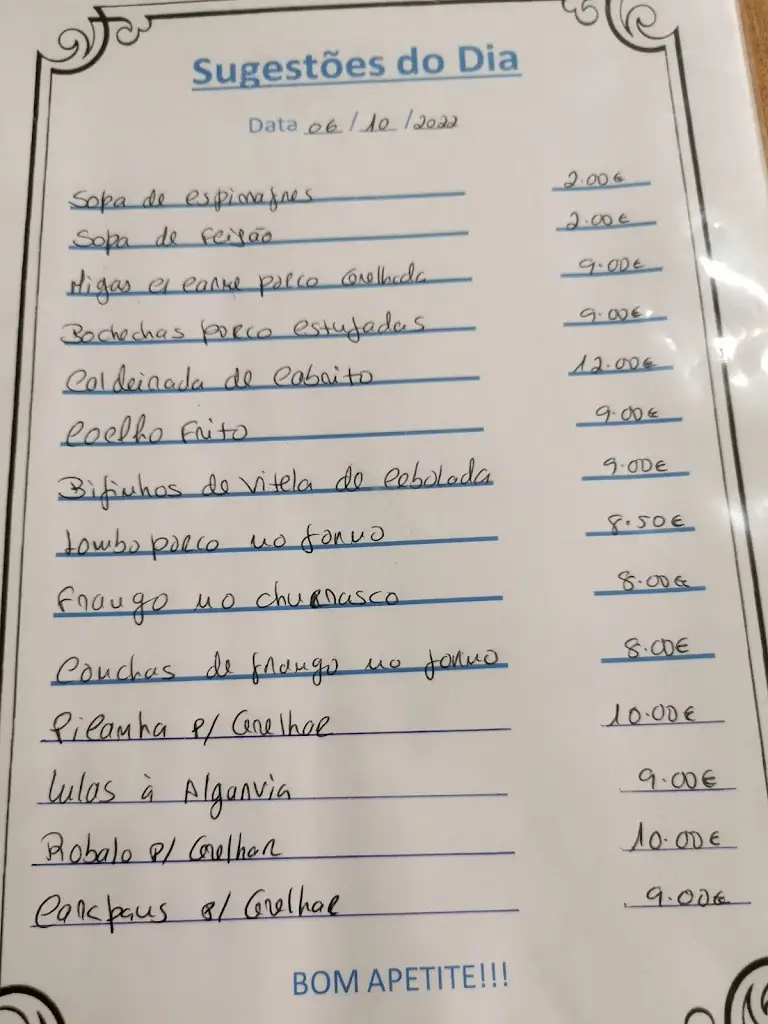 Sugestões do Dia
Data 06/10/2022
Sopa de espinafres 2.00€
Sopa de feijão 2.00€
Migas c/ carne porco Grelhada 9.00€
Bochechas porco estufadas 9.00€
Caldeirada de Cabrito 12.00€
Coelho Frito 9.00€
Bifinhos de Vitela de cebolada 9.00€
Lombo porco no forno 8.50€
Frango no churrasco 8.00€
Conchas de frango no forno 8.00€
Picanha p/ Grelhar 10.00€
Lulas à Algarvia 9.00€
Robalo p/ Grelhar 10.00€
Carapaus p/ Grelhar 9.00€
BOM APETITE!!!